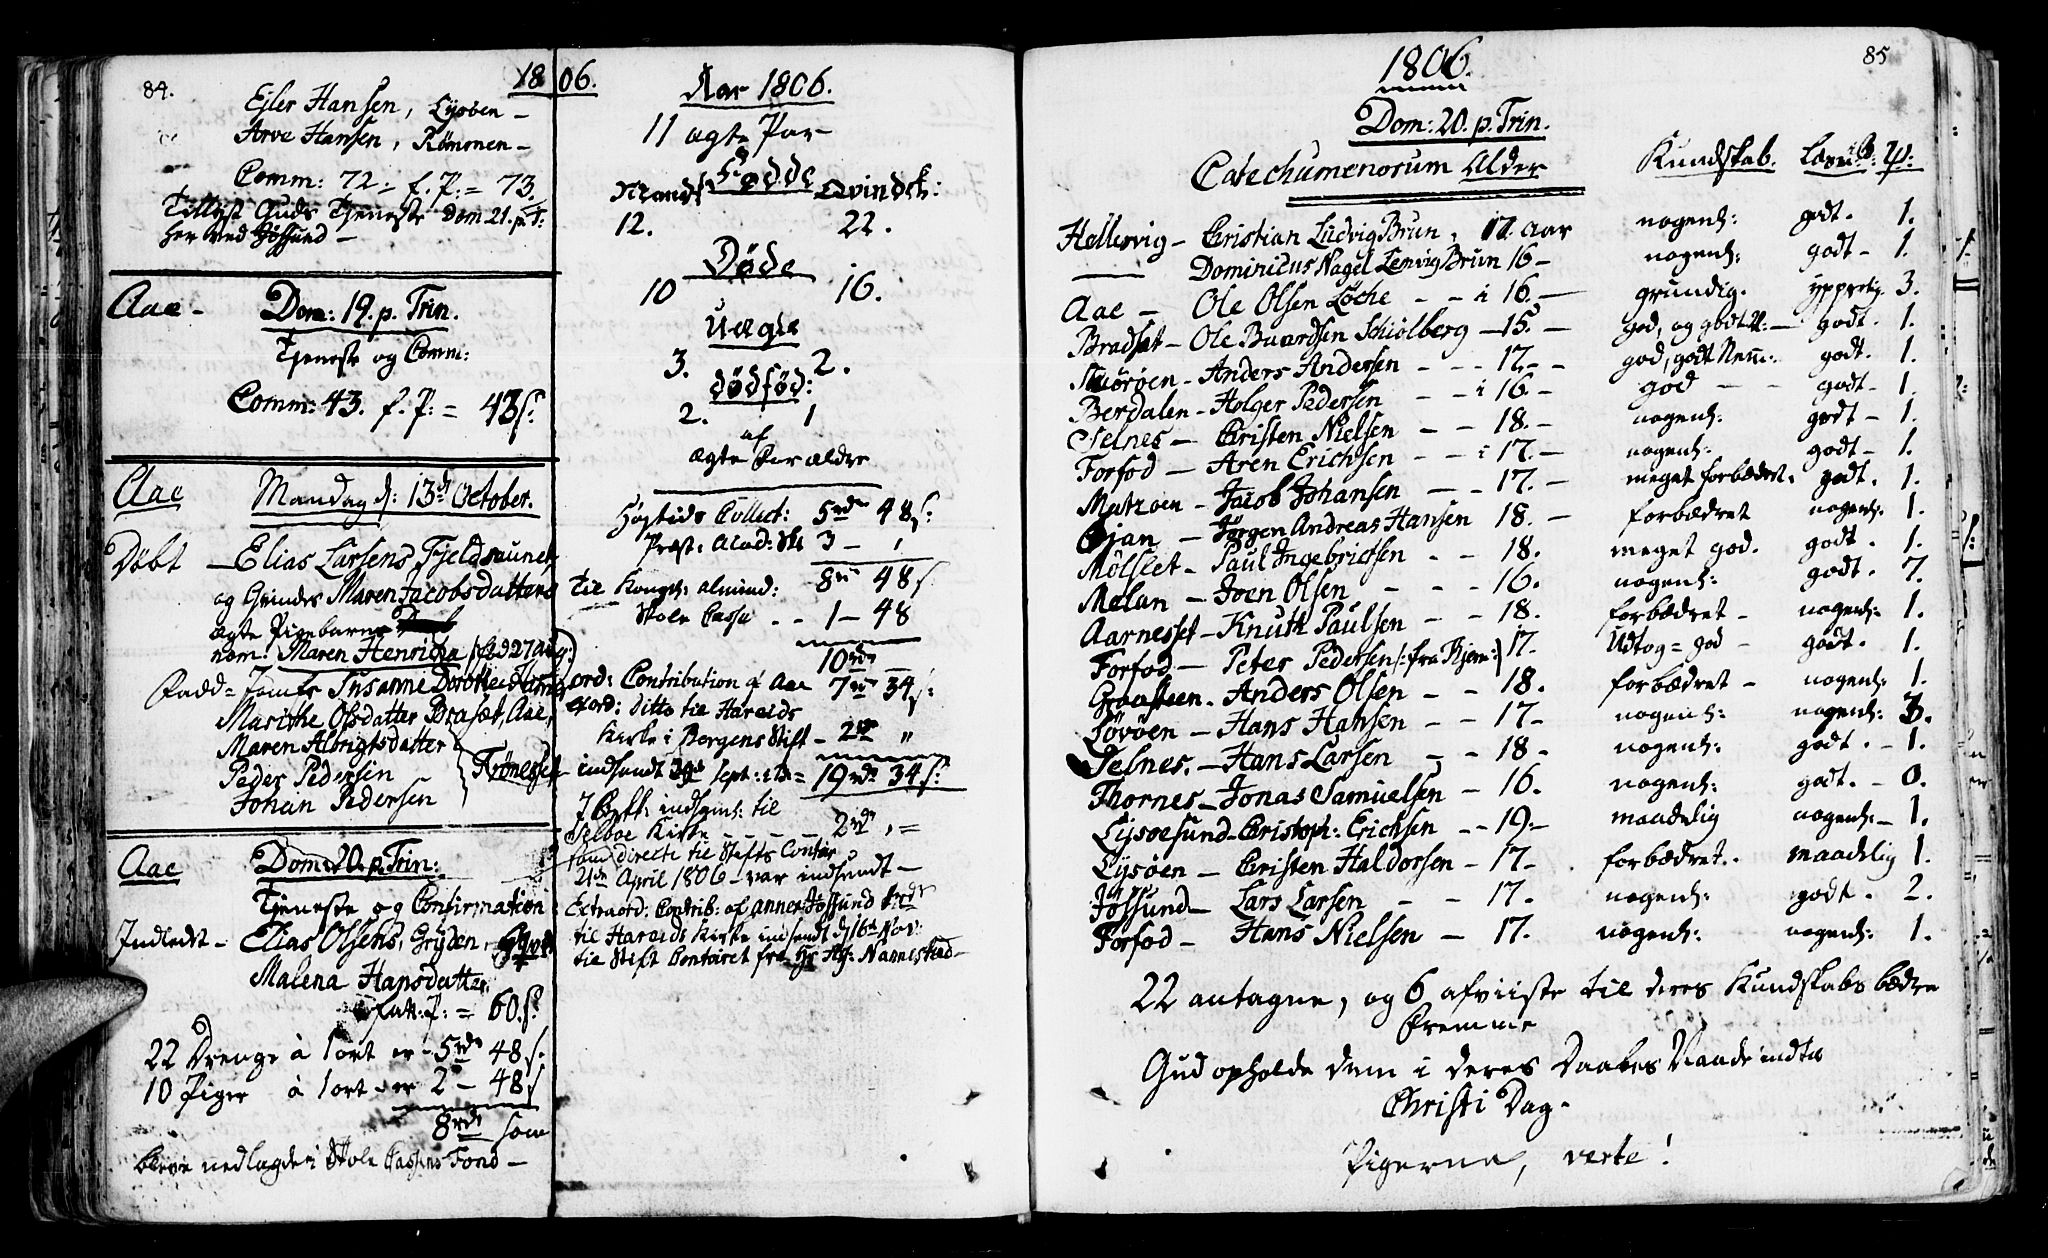 84.
1806.
Ejler Hansen, Lysøen -
Arve Hansen, Rømmen -
Comm: 72 - f. P: = 73.
Tillyst Guds Tjeneste Dom 21. p. T:
her ved Jøssund -
Aae - Dom: 19. p. Trin.
Tjeneste og Comm:
Comm: 43. f. P: = 43 s:
Aae Mandag d: 13de October.
Døbt - Elias Larsens Fjeldsaunet
og Qvindes Maren Jacobsdatters
ægte Pigebarn
nom: Maren Henricha /: fød 27 Aug:
Fadd = Jomfr Susanne Dorothea
Marithe Olsdatter Bradset, Aae,
Maren Albrigtsdatter
Peder Pedersen Trønesset
Johan Pedersen
Aae Dom: 20. p. Trin:
Tjeneste og Confirmation
Indledt - Elias Olsens, Gryden,
Malena Hansdatter
fatt: P: = 60 s:
22 Drenge à 1 ort er - 5 rd 48 s.
10 Piger à 1 ort - er 2 - 48 s
8 rd som
bleve nedlagde i Skole Cassens Fond -
Aar 1806.
11 ægte Par
Fødde
Mandk: Qvindek:
12. 22.
Døde
10 16.
Uægte
3. 2.
dødfød:
2. 1
af
ægte Forældre
Høytids Collect: 5 rd 48 s:
Præst: Acad: 3 - ,
8 rd 48 s.
Til Kongl: almind:
Skole Cassa - - 1 - 48
10 rd
ord: Contribution af Aae 7 rd 34 s:
Extraord: ditto til Hareids
Kirke i Bergens Stift - 2 rd "
indsendt Sept: = 19 rd 34 s:
indsent til
Selboe Kirke - - - - 2 rd , =
som directe til Stifts Contor
21de April 1806 - var indsendt -
Extraord: Contrib: af annex Jøssund
til Hareids Kirke indsendt d 16de Nov:
til Stift Contoiret fra Hr. Nannestad -
85
1806.
Dom: 20. p. Trin.
Catechumenorum Alder Kundskab. Læsn:
Hellesvig - Christian Ludvig Brun, 17 aar nogenl: godt. 1.
Dominicus Nagel Lemvig Brun 16 - nogenl: godt - 1.
Aae - Ole Olsen Løche - - i 16. - grundig. ypperlig. 3.
Bradset - Ole Schiolberg - 15. - god, og godt N: - godt. 1.
Størøen - Anders Andersen - - - 17 - - god, godt Nem: godt. 1.
Berdalen - Holger Pedersen - - i 16. - god - - godt - 1.
Selnes - Christen Nielsen - - 18. - nogenl: godt - 1.
Forfod - Aren Erichsen - - i 17. - nogenl: godt - 1.
Matzoen - Jacob Johansen - - 17. - meget forbædret. godt. 1.
Ojan - Jørgen Andreas Hansen 18. - forbædret nogenl: 1.
Mølslet - Paul Ingebrigtsen - - 18. meget god. godt. 1.
Melan - Joen Olsen - - - 16. nogenl: godt. 7.
Aarnesset - Knuth Paulsen - - 18. forbædret - nogenl: 1.
Forfod - Peter Pedersen /: fra Bjørn:/ 17. Udtog = god - godt. 1.
Graasteen - Anders Olsen - - 18. forbædret - nogenl: 1.
Sørøen - Hans Hansen - - 17 - nogenl: nogenl: 3.
Selnes. - Hans Larsen - - 18 - nogenl: godt. - 1.
Thornes - Jonas Samuelsen - 16. nogenl: godt. - 0.
Lysøesund - Christoph: Erichsen - - 19 - maadelig nogenl: - 1.
Lysøen - Christen Haldorsen - 17 - forbædret.. maadelig 1.
Jøssund - Lars Larsen - - 17. nogenl: godt. 2.
Forfod - Hans Nielsen - 17. nogenl: nogenl: 1.
22 antagne, og 6 afviiste til deres Kundskabs bædre
Fremme
Gud opholde dem i deres Daabes Naade indtil
Christi Dag -
Pigerne, verte!